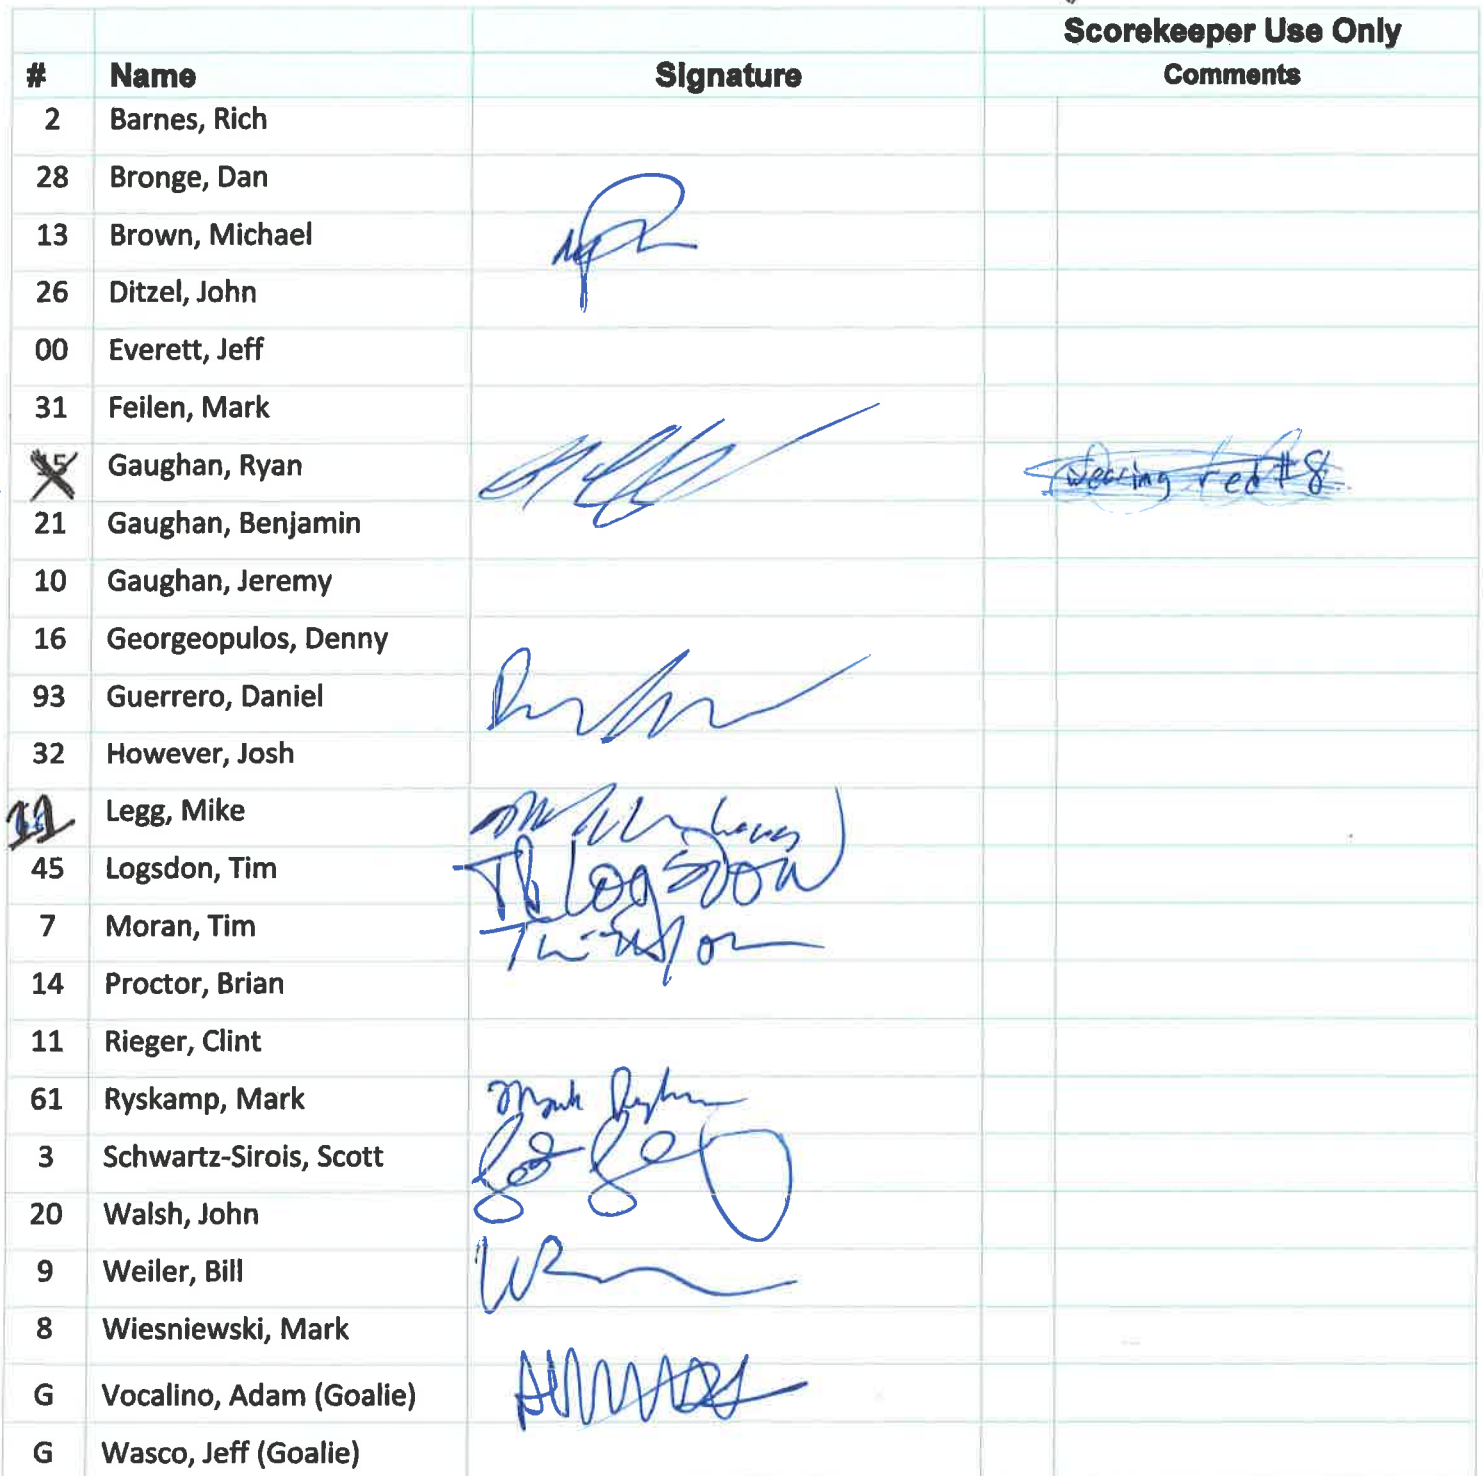 Scorekeeper Use Only
# Name Signature Comments
2 Barnes, Rich
28 Bronge, Dan
13 Brown, Michael
26 Ditzel, John
00 Everett, Jeff
31 Feilen, Mark
Gaughan, Ryan wearing red #8
21 Gaughan, Benjamin
10 Gaughan, Jeremy
16 Georgeopulos, Denny
93 Guerrero, Daniel
32 However, Josh
11 Legg, Mike
45 Logsdon, Tim Logsdon
7 Moran, Tim
14 Proctor, Brian
11 Rieger, Clint
61 Ryskamp, Mark Mark
3 Schwartz-Sirois, Scott
20 Walsh, John
9 Weiler, Bill
8 Wiesniewski, Mark
G Vocalino, Adam (Goalie)
G Wasco, Jeff (Goalie)